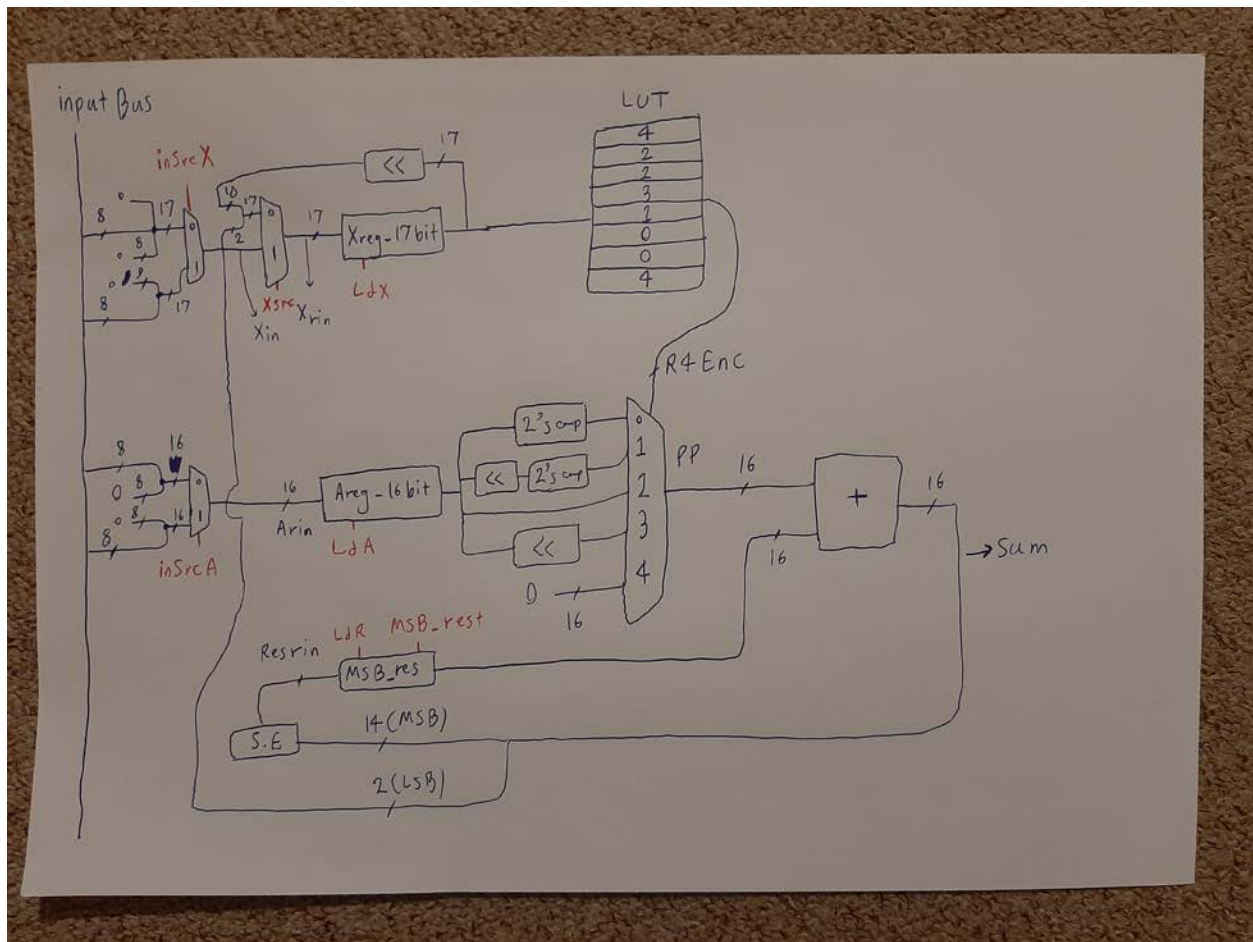 input Bus
LUT
4
2
2
3
1
0
0
4
inSrcX
<<
17
8
0
17
0
8
0
9
8
17
0
1
10
17
2
0
1
17
Xreg-17bit
LdX
Xsrc
Xin
Xrin
R4 Enc
8
16
0
8
0
8
16
8
0
1
inSrcA
16
Arin
Areg-16bit
LdA
2's cmp
<<
2's cmp
<<
0
16
0
1
2
3
4
PP
16
16
+
16
→ Sum
Resrin
LdR
MSB_rest
MSB_res
S.E
14(MSB)
2(LSB)